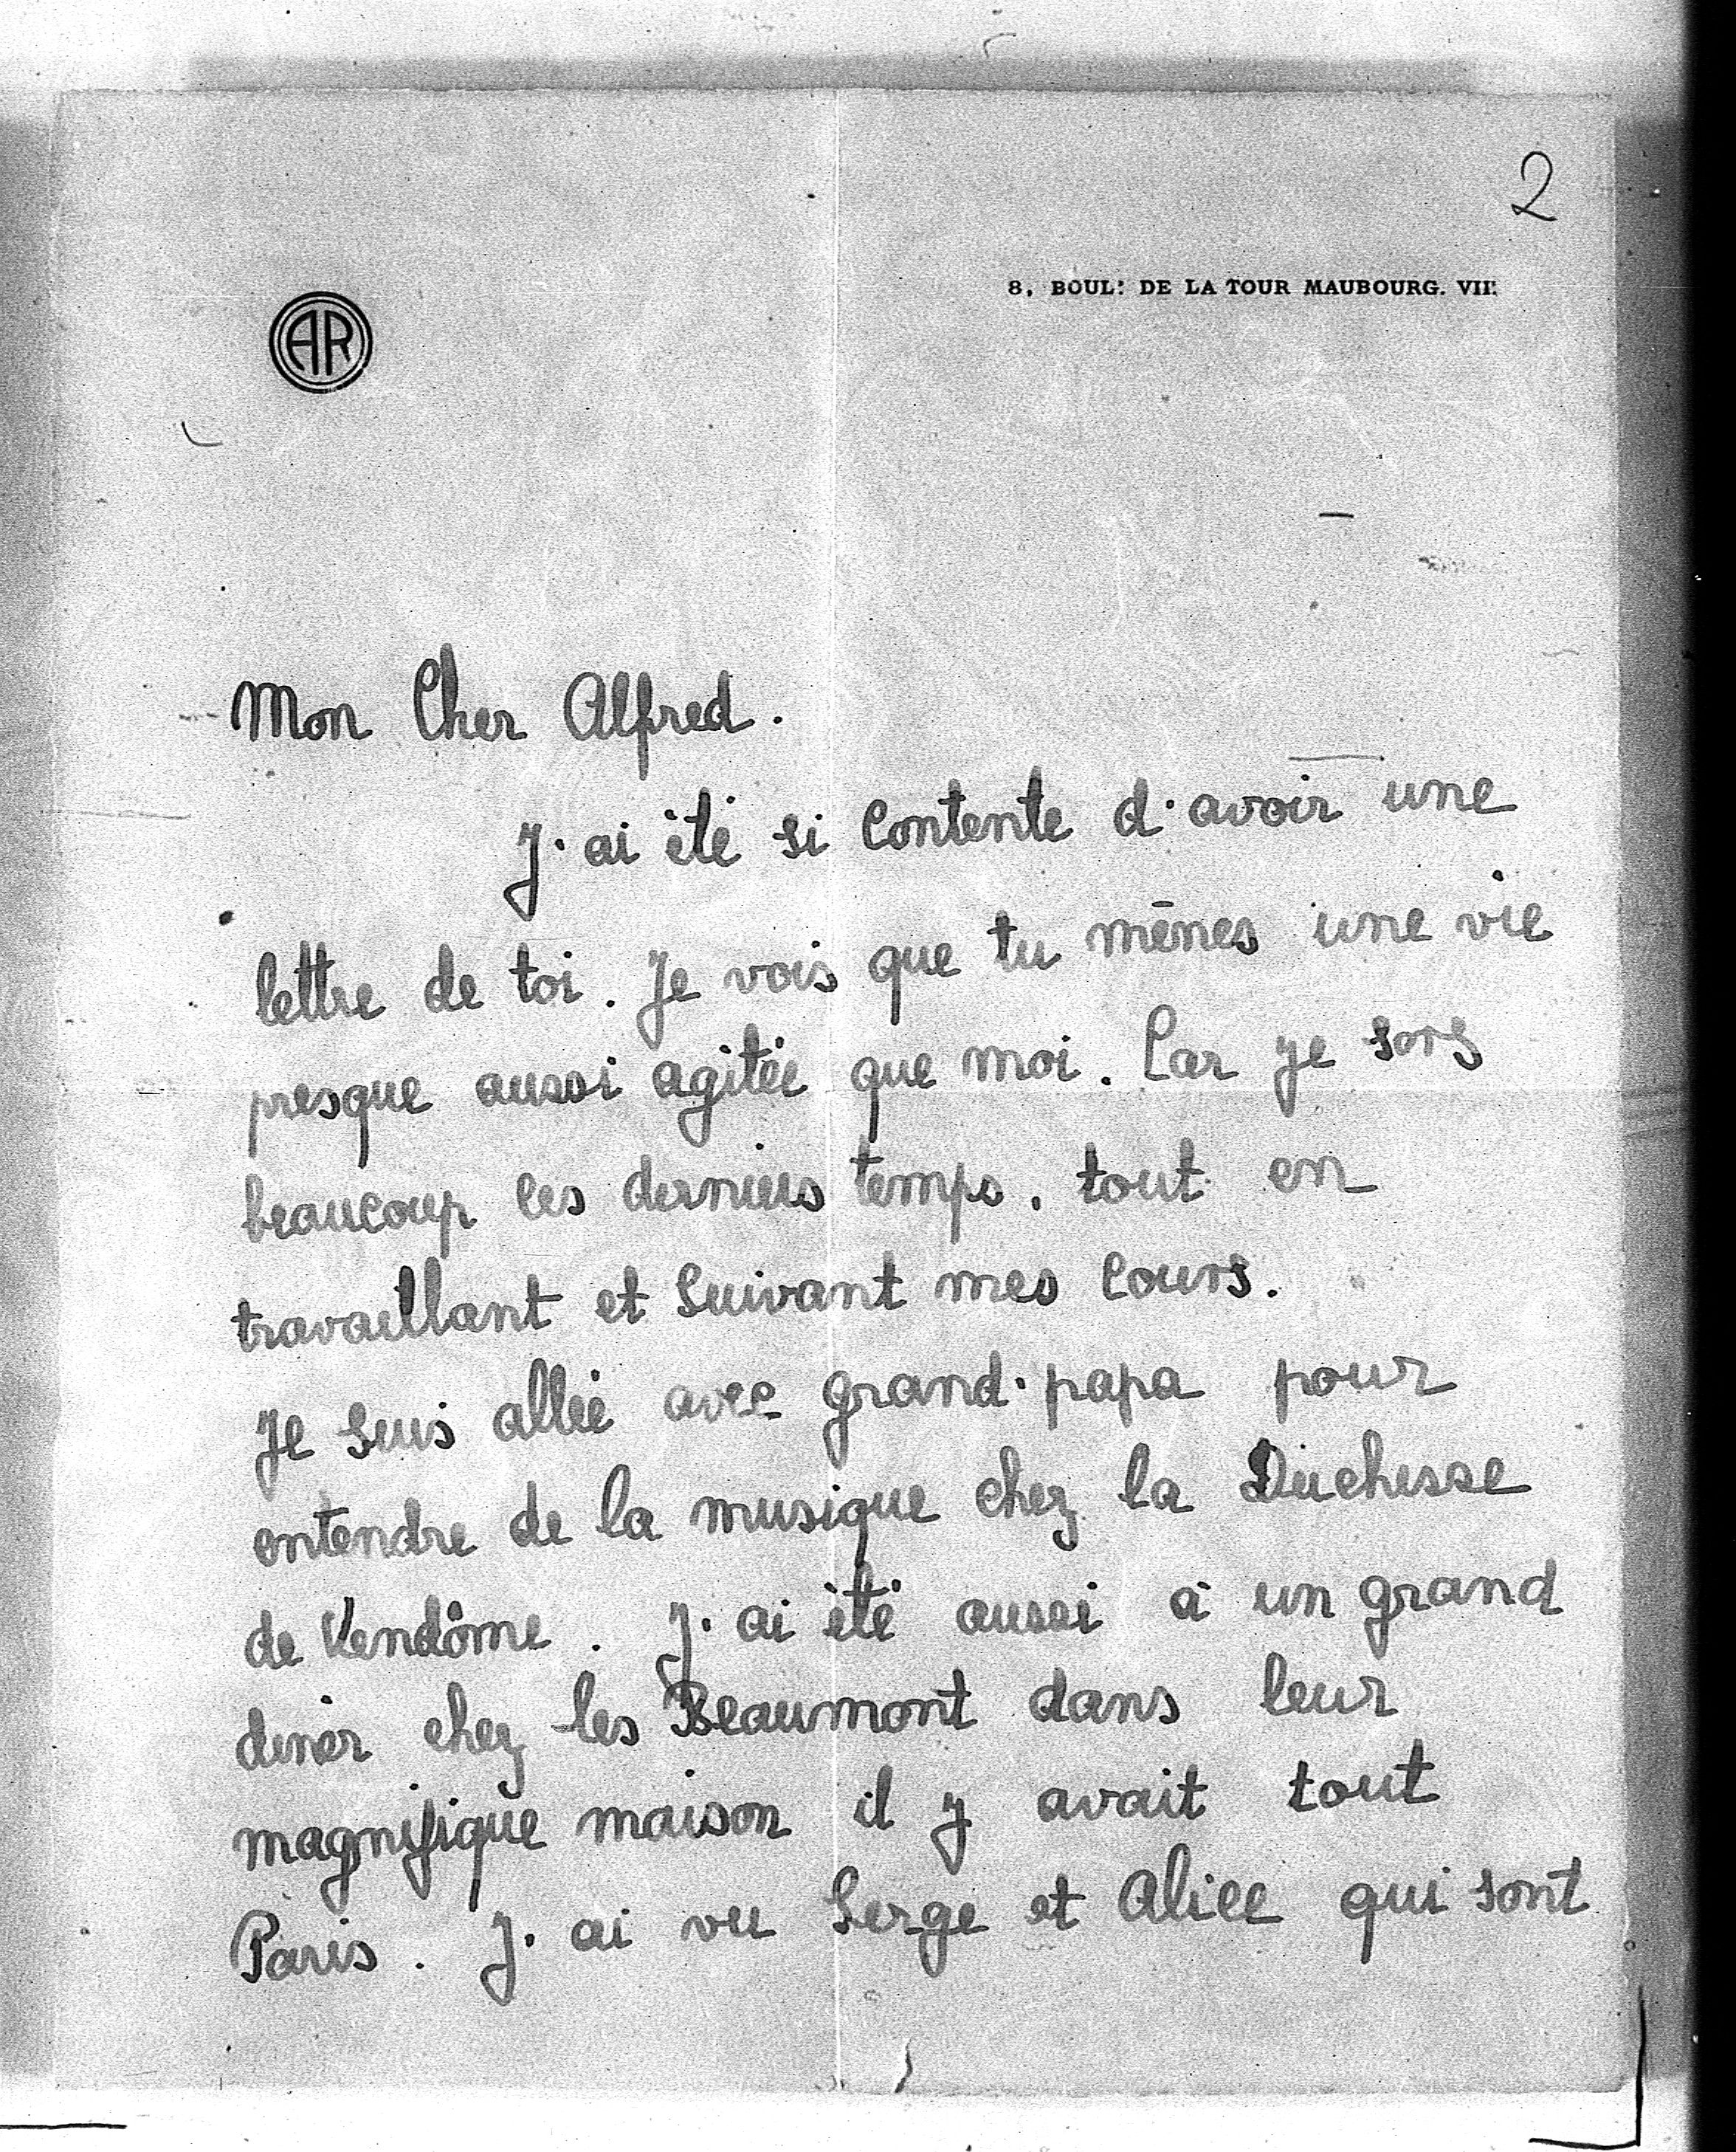 2
8, BOULD DE LA TOUR MAUBOURG. VIIE
AR
Mon Cher Alfred.
J'ai été si contente d'avoir une
lettre de toi. Je vois que tu mènes une vie
presque aussi agitée que moi. Car je sors
beaucoup ces derniers temps, tout en
travaillant et suivant mes cours.
Je suis allée avec grand-papa pour
entendre de la musique chez la Duchesse
de Vendôme. J'ai été aussi à un grand
diner chez les Beaumont dans leur
magnifique maison il y avait tout
Paris. J'ai vu Serge et Alice qui sont